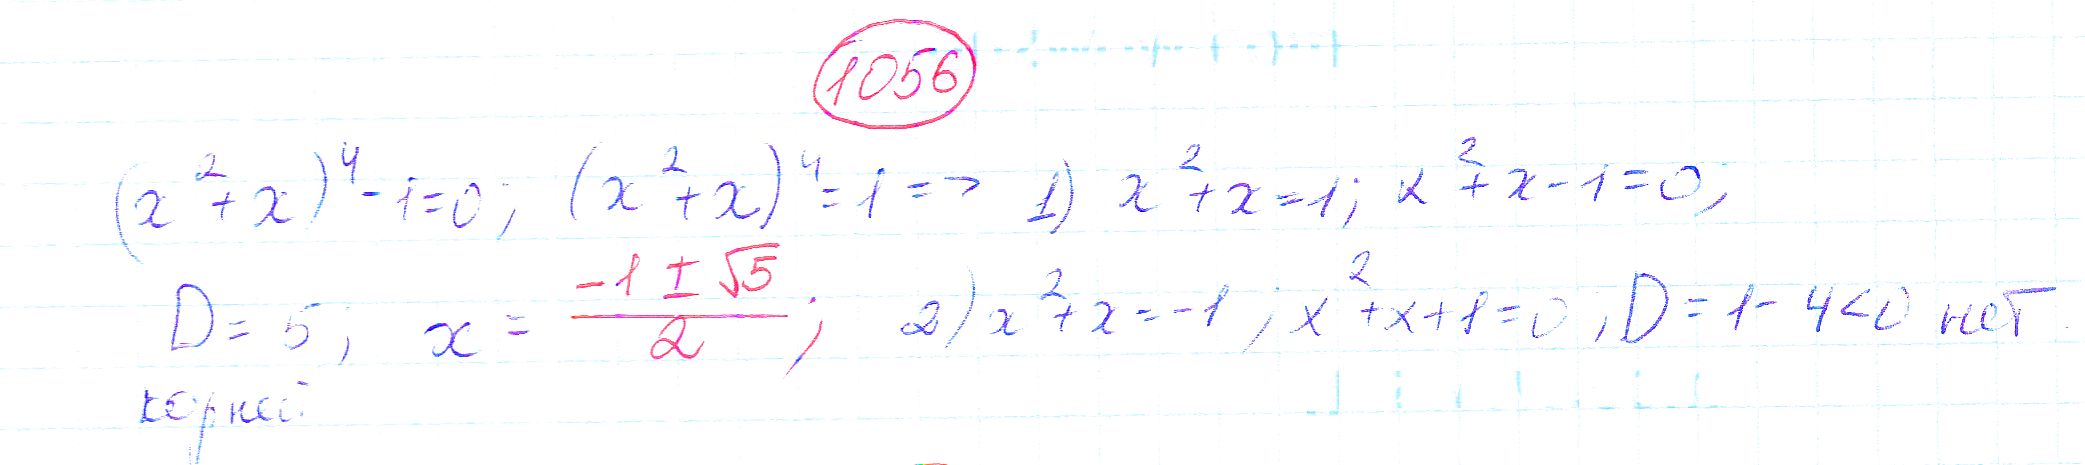 1056
(x²+x)⁴-1=0; (x²+x)⁴=1 => 1) x²+x=1; x²+x-1=0;
D=5; x = (-1±√5)/2; 2) x²+x=-1; x²+x+1=0; D=1-4<0 нет
корней